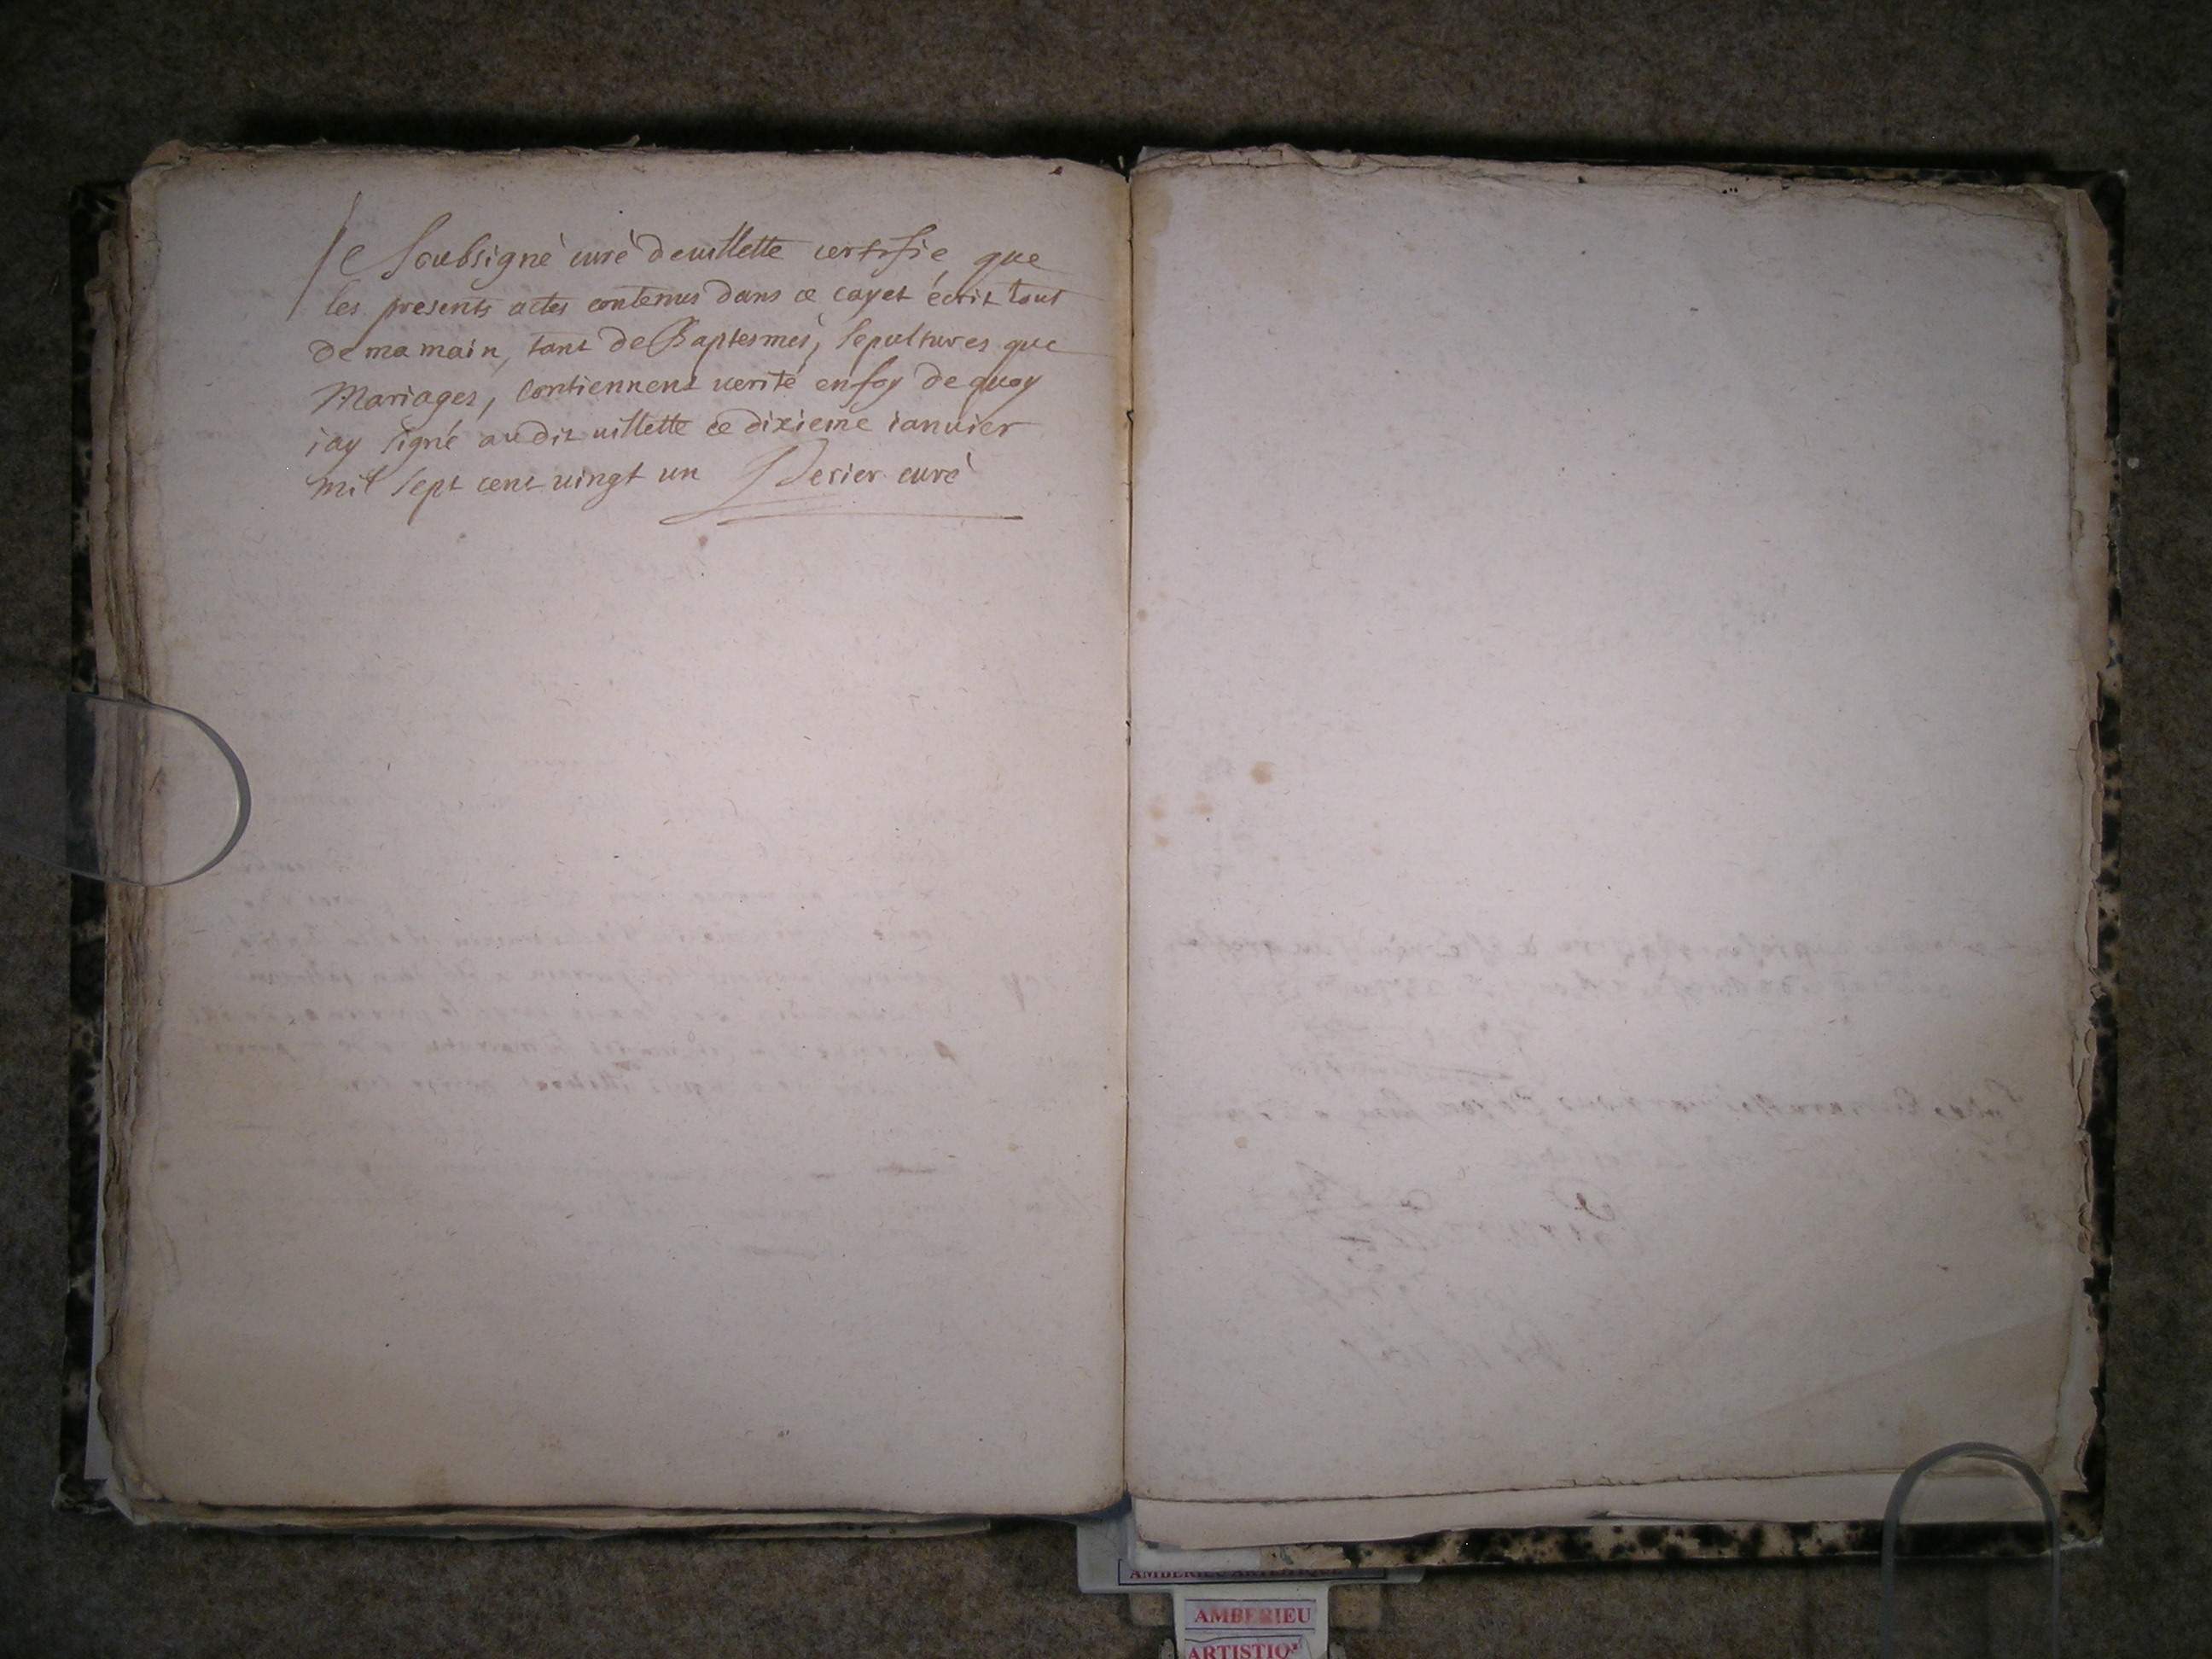 Je soubsigné curé de uillette certifie que
les presents actes contenus dans ce cayet écrit tout
de ma main, tant de Baptesmes, sepultures que
Mariages, contiennent uerité en foy de quoy
iay signé audit uillette ce dixieme ianuier
mil sept cent uingt un Desier curé
AMBERIEU
ARTISTIQ